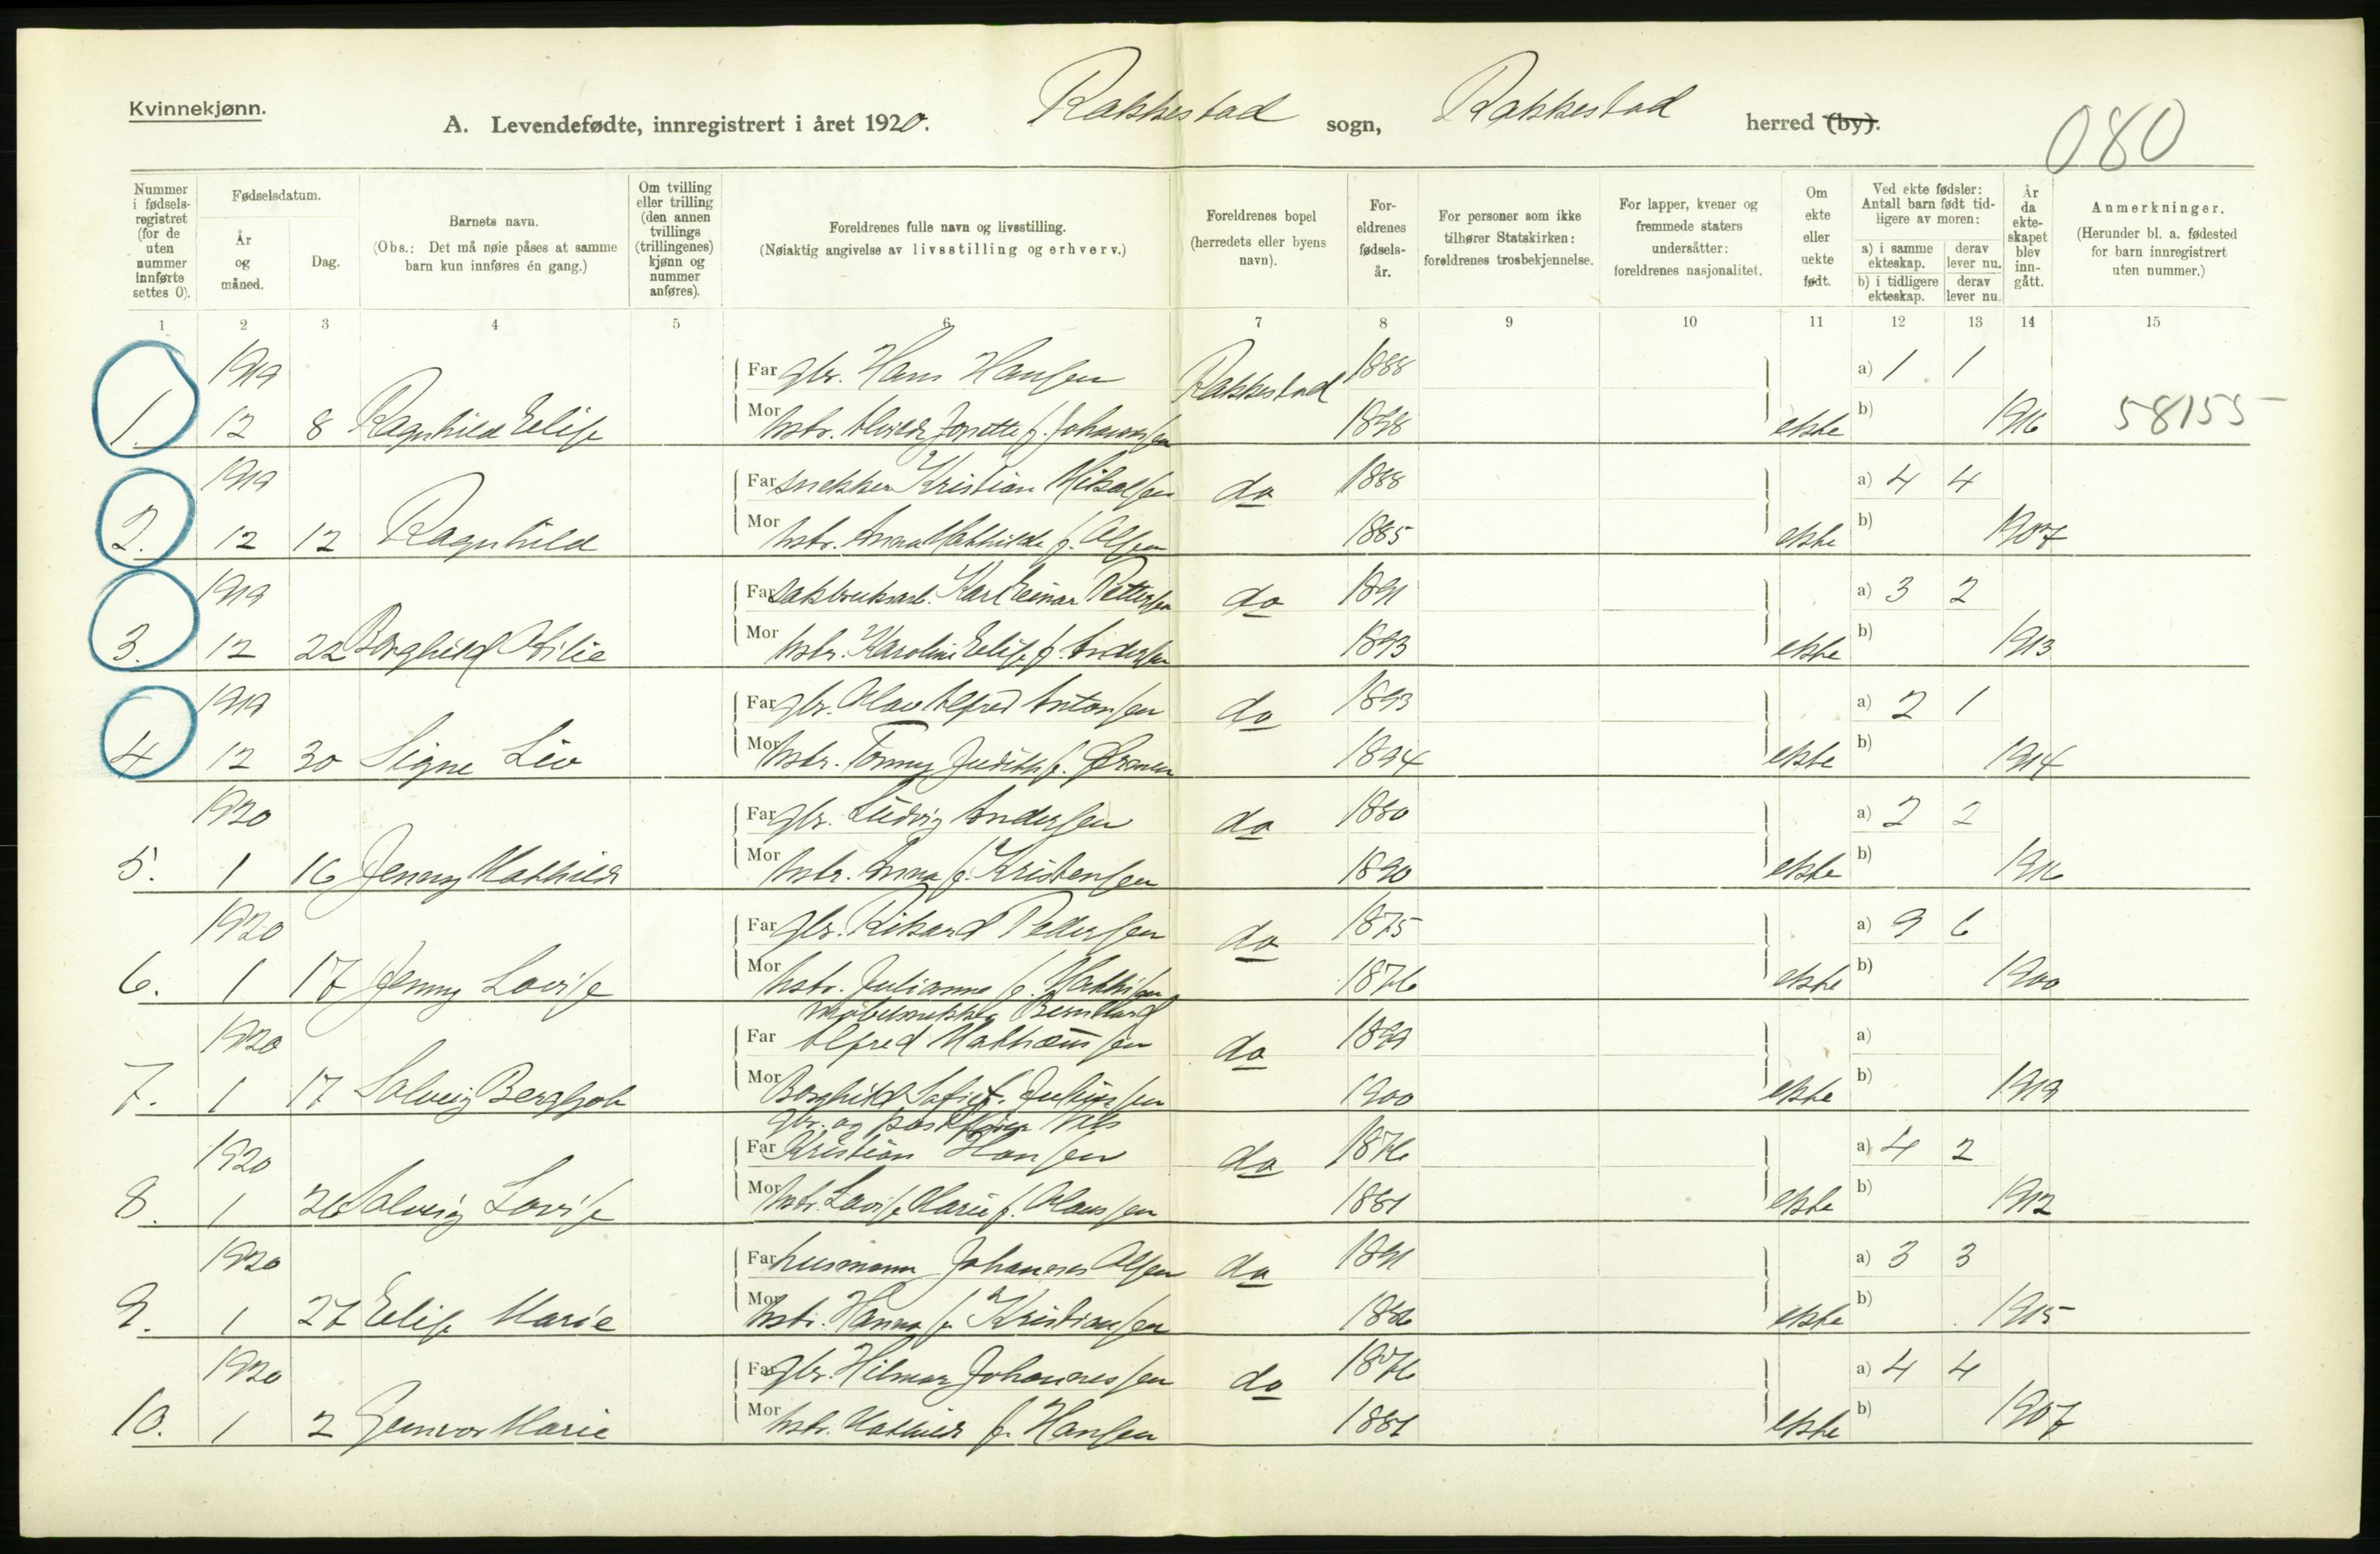 Kvinnekjønn.
A. Levendefødte, innregistrert i året 1920. Rakkestad sogn, Rakkestad herred (by).
080
Nummer i fødsels-registret (for de uten nummer innførte settes 0).
Fødselsdatum.
År og måned.
Dag.
Barnets navn.
(Obs.: Det må nøie påses at samme barn kun innføres én gang.)
Om tvilling eller trilling (den annen tvillings (trillingenes) kjønn og nummer anføres).
Foreldrenes fulle navn og livsstilling.
(Nøiaktig angivelse av livsstilling og erhverv.)
Foreldrenes bopel (herredets eller byens navn).
For-eldrenes fødsels-år.
For personer som ikke tilhører Statskirken: foreldrenes trosbekjennelse.
For lapper, kvener og fremmede staters undersåtter: foreldrenes nasjonalitet.
Om ekte eller uekte født.
Ved ekte fødsler: Antall barn født tid-ligere av moren:
a) i samme ekteskap. derav lever nu.
b) i tidligere ekteskap. derav lever nu.
År da ekte-skapet blev inn-gått.
Anmerkninger.
(Herunder bl. a. fødested for barn innregistrert uten nummer.)
1 2 3 4 5 6 7 8 9 10 11 12 13 14 15
1919 Far gbr. Hans Hansen Rakkestad 1888 a) 1 1
1. 12 8 Ragnhild Elise Mor hstr. Josette f. Johannessen 1898 ekte b) 1916 58155
1919 Far snekker Kristian Mikalsen do 1888 a) 4 4
2. 12 12 Ragnhild Mor hstr. Anna Mathilde f. Olsen 1885 ekte b) 1907
1919 Far Karl Einar Pettersen do 1891 a) 3 2
3. 12 22 Borghild Otilie Mor hstr. Karoline Elise f. Andersen 1893 ekte b) 1913
1919 Far gbr. Olav Alfred Antonsen do 1893 a) 2 1
4 12 30 Signe Liv Mor hstr. Judith f. 1894 ekte b) 1914
1920 Far gbr. Ludvig Andersen do 1880 a) 2 2
5. 1 16 Jenny Mathilde Mor hstr. Anna f. Kristensen 1890 ekte b) 1916
1920 Far gbr. Rikard Pedersen do 1875 a) 9 6
6. 1 17 Jenny Lovise Mor hstr. Julianne f. Mathisen 1876 ekte b) 1900
møbelsnekker Bernhard
1920 Far Alfred Mathæussen do 1899 a)
7. 1 17 Solveig Bergljot Mor Borghild Sofie f. Juliussen 1900 ekte b) 1919
gbr. og Nils
1920 Far Kristian Hansen do 1876 a) 4 2
8. 1 26 Solveig Lovise Mor hstr. Lovise Marie f. Olaussen 1881 ekte b) 1912
1920 Far husmann Johannes Olsen do 1891 a) 3 3
9. 1 27 Elise Marie Mor hstr. Hanna f. Kristiansen 1886 ekte b) 1915
1920 Far gbr. Hilmar Johannessen do 1876 a) 4 4
10. 1 2 Gunvor Marie Mor hstr. Mathilde f. Hansen 1881 ekte b) 1907